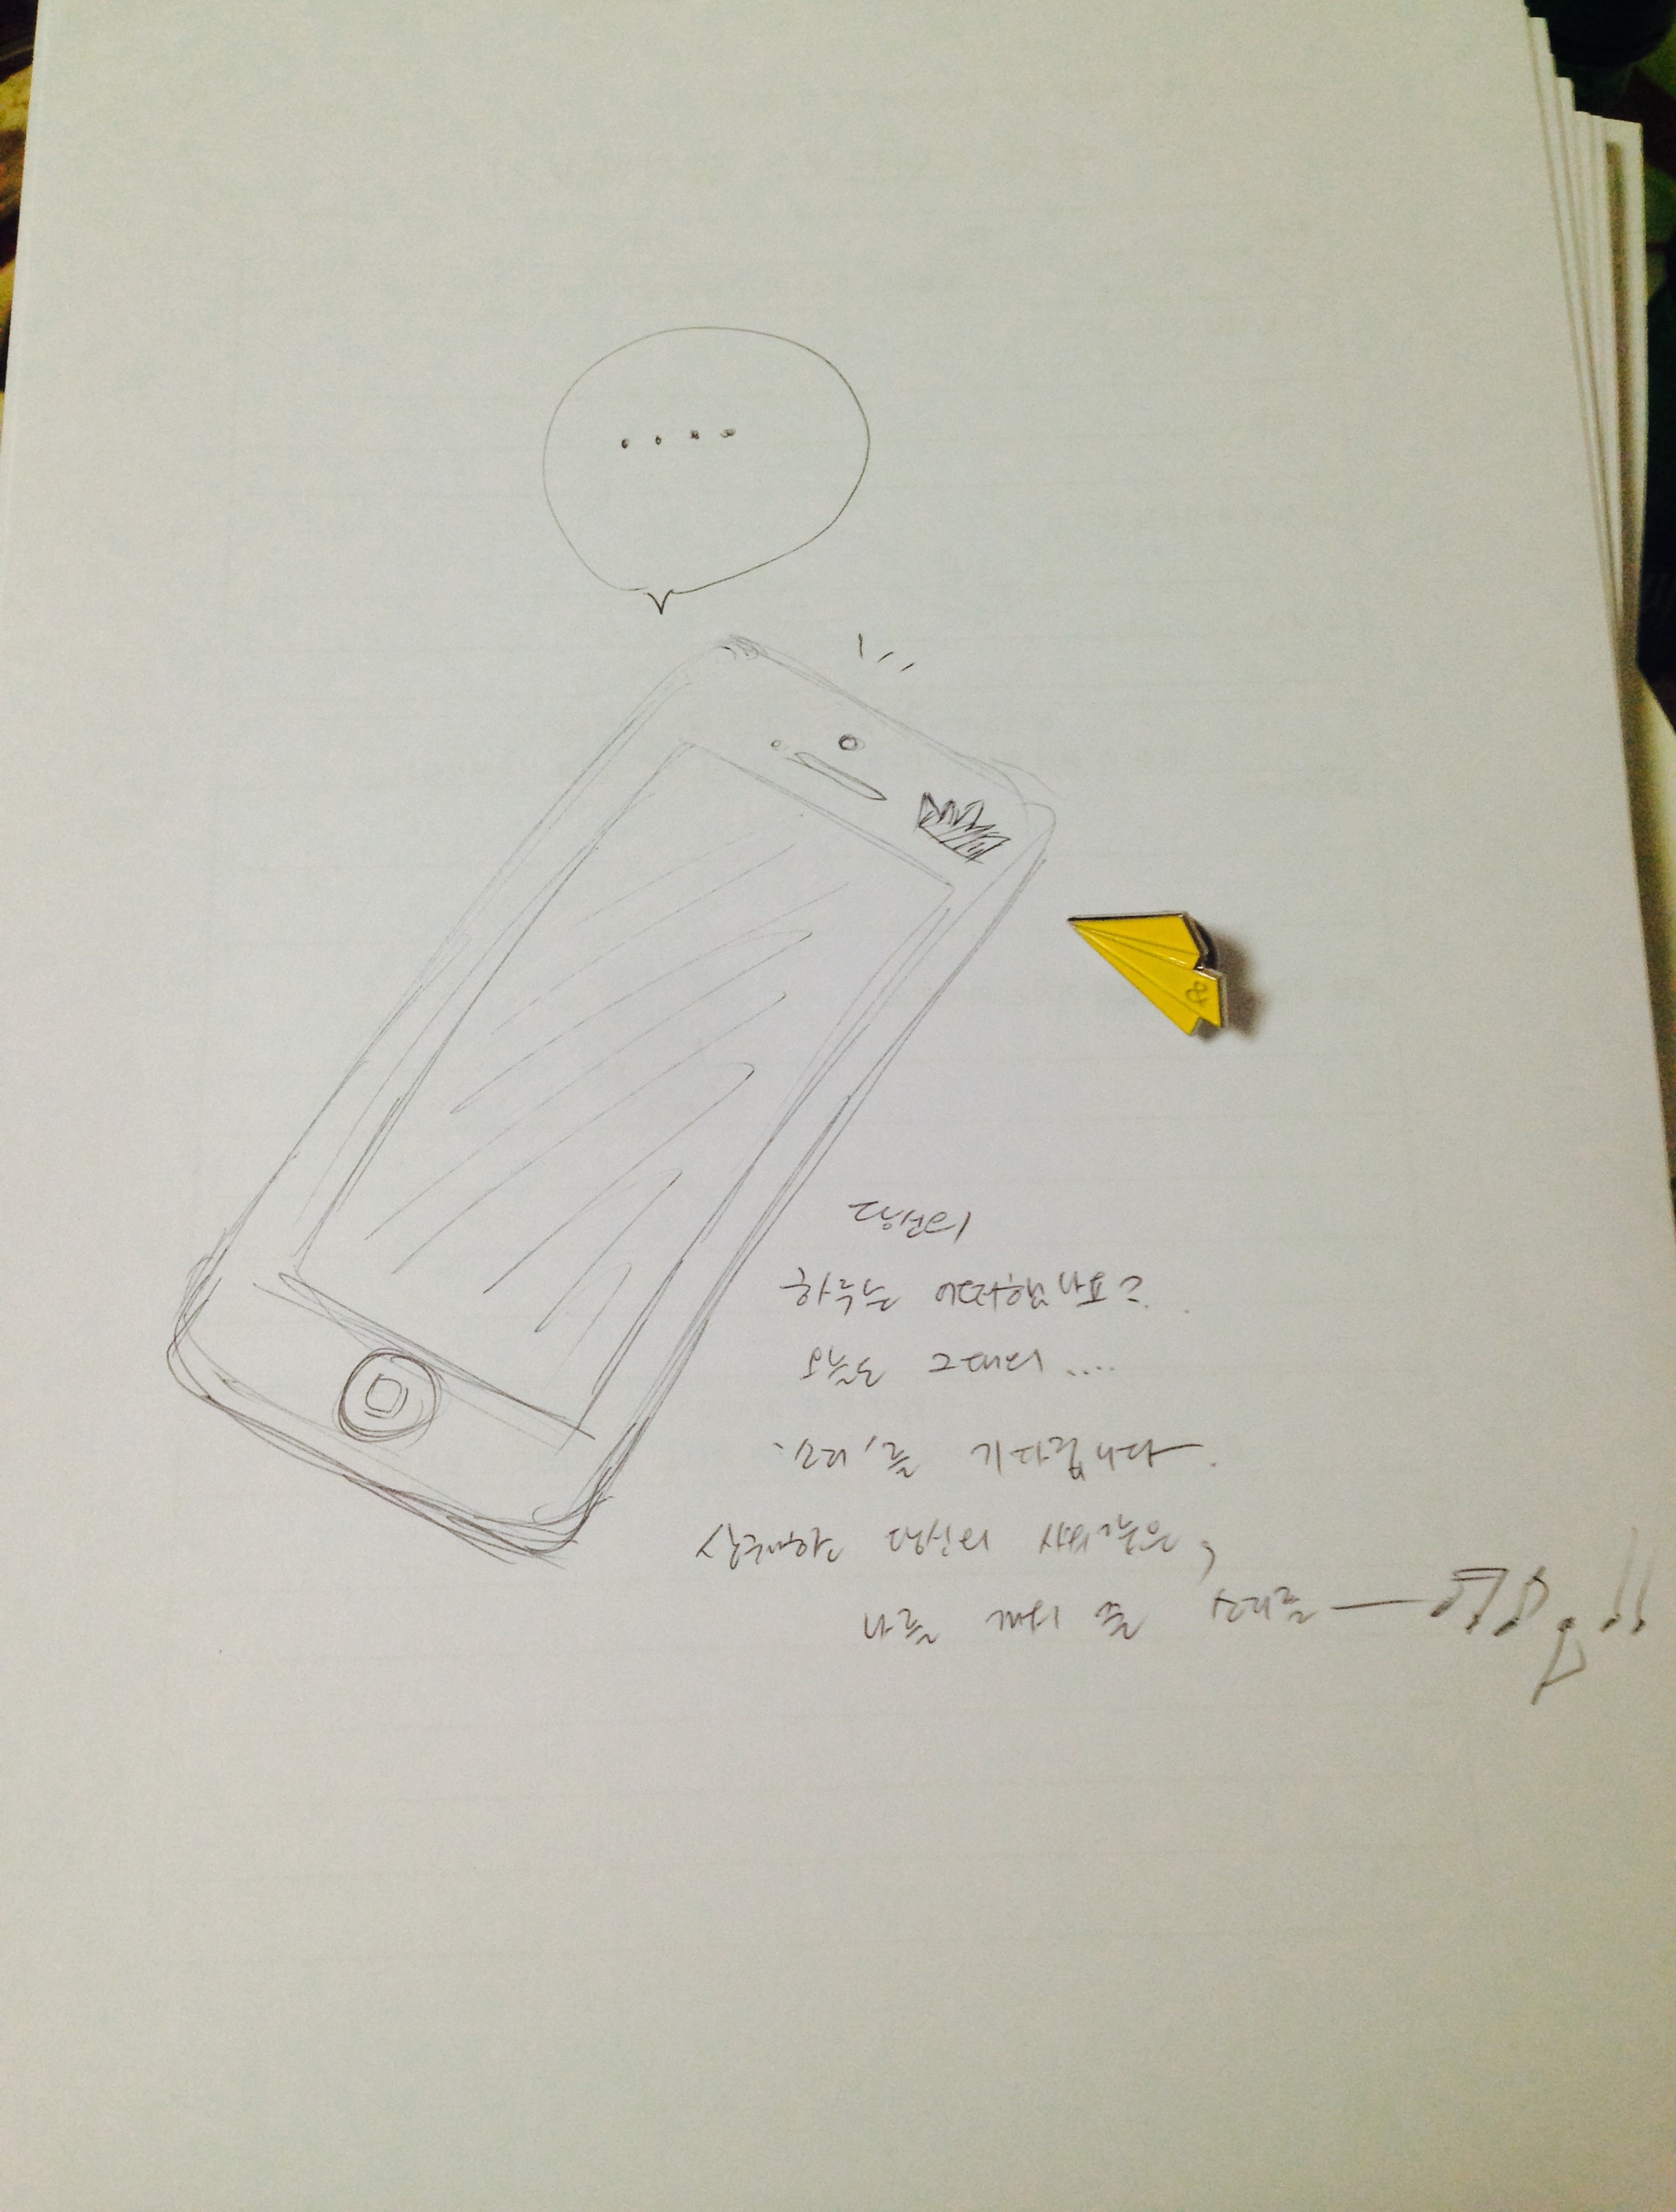 ....
당신의
하루는 어떠합니까요?
오늘도 그대의 ....
'소리'를 기다립니다.
상쾌한 당신의 새벽같은,
나를 깨워 줄 소리를